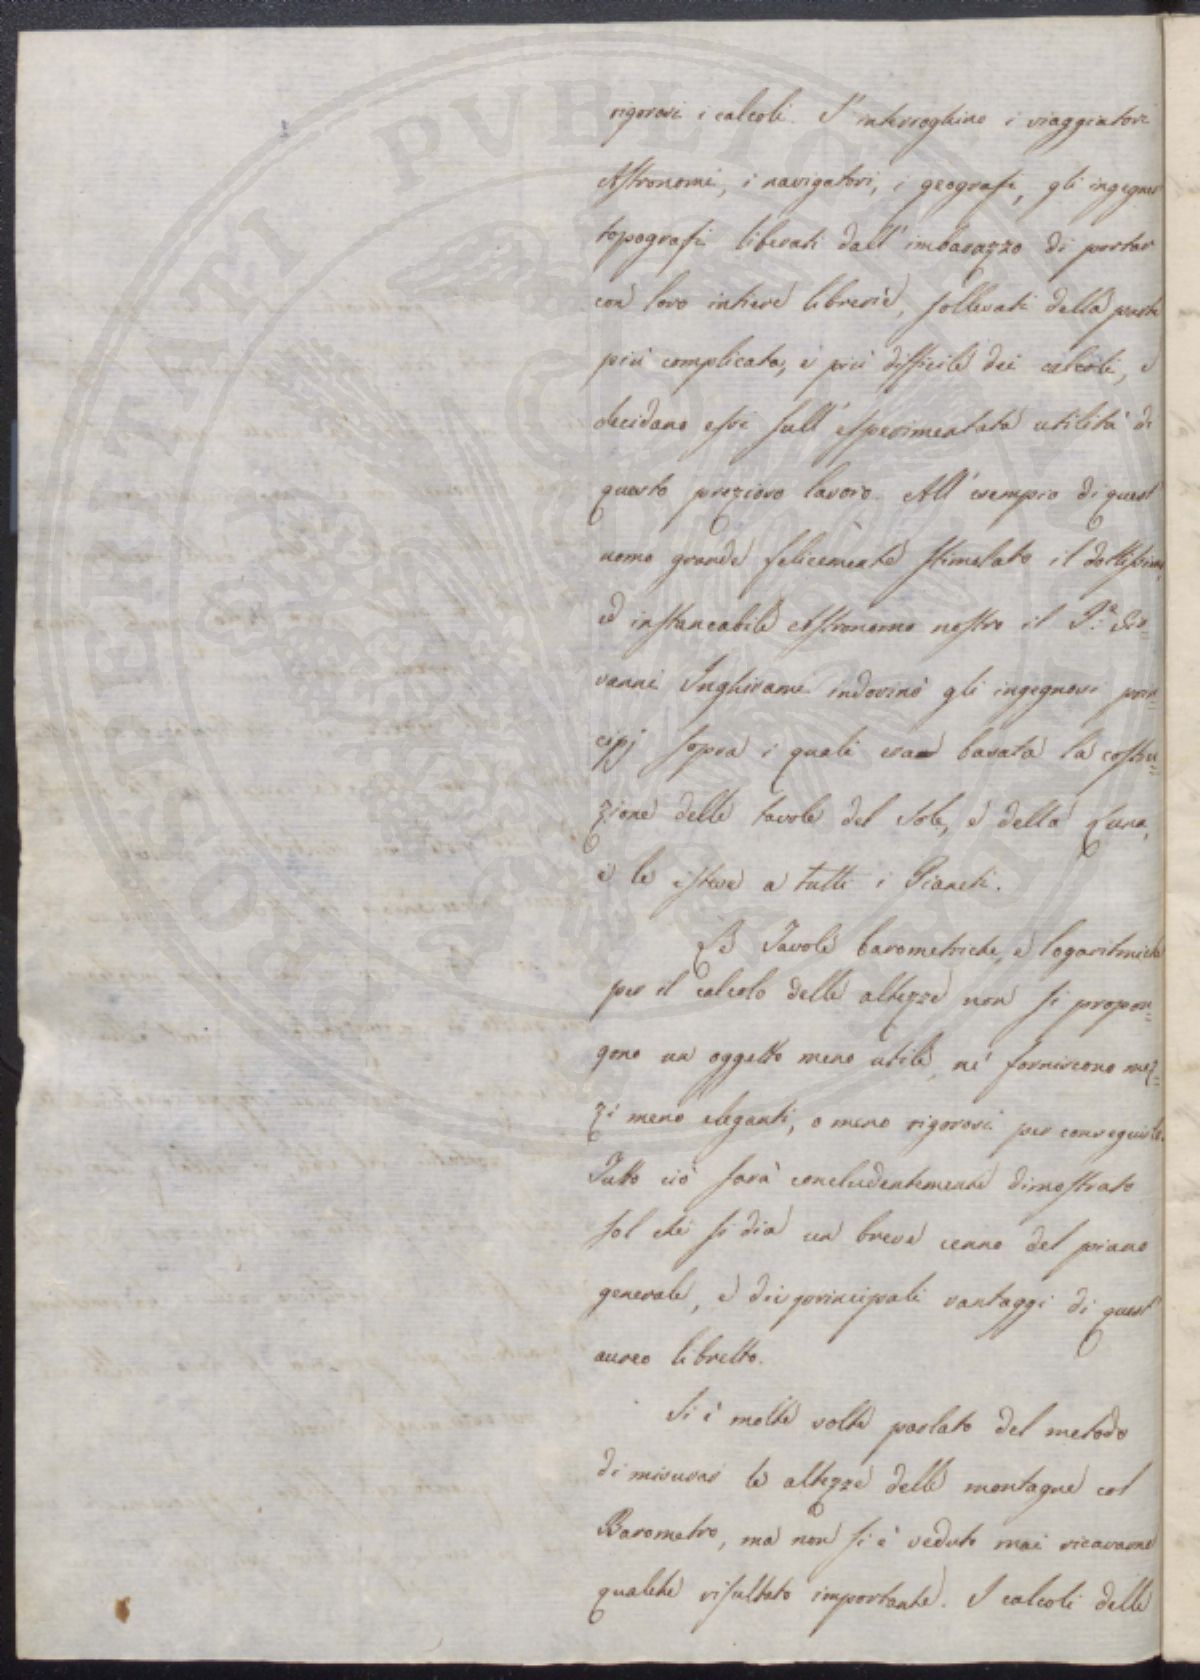 rigorosi i calcoli. S'interroghino i viaggiatori
Astronomi, i navigatori, i geografi, gli ingegneri
topografi liberati dall'imbarazzo di portar
con loro intiere librerie, sollevati della parte
più complicata, e più difficile dei calcoli, e
decidano essi sull'esperimentata utilità di
questo prezioso lavoro. All'esempio di quest'
uomo grande felicemente stimolato il dottissimo,
ed instancabile Astronomo nostro il P.e Gio=
vanni Inghirami indovinò gli ingegnosi prin=
cipj sopra i quali era basata la costru=
zione delle tavole del Sole, e della Luna,
e le estese a tutti i Pianeti.
Le Tavole barometriche, e logaritmiche
per il calcolo delle altezze non si propon=
gono un oggetto meno utile, nè forniscono mez=
zi meno eleganti, o meno rigorosi per conseguirlo.
Tutto ciò sarà concludentemente dimostrato
sol che si dia un breve cenno del piano
generale, e dei principali vantaggi di quest'
aureo libretto.
Si è molte volte parlato del metodo
di misurar le altezze delle montagne col
Barometro, ma non si è veduto mai ricavarne
qualche risultato importante. I calcoli delle
PVBLICAE